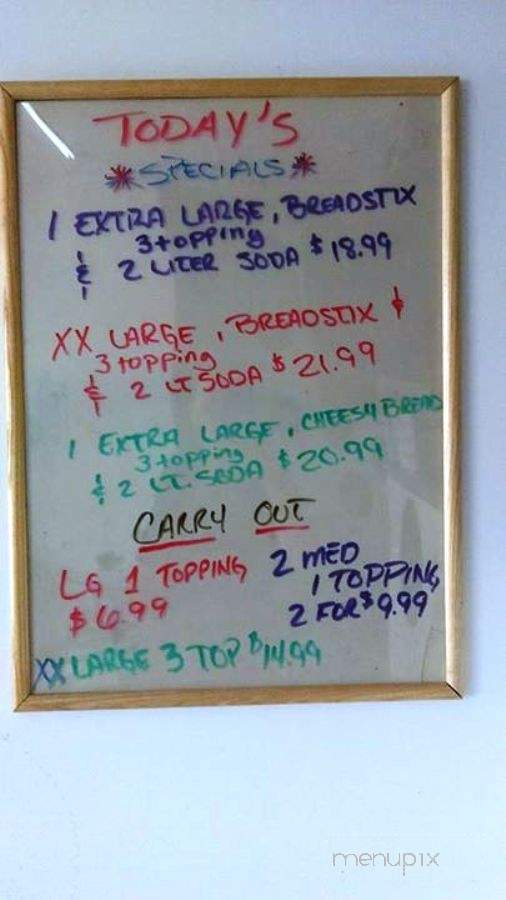 TODAY'S
*SPECIALS*
1 EXTRA LARGE, BREADSTIX
3 topping
& 2 LITER SODA $18.99
XX LARGE, BREADSTIX &
3 topping
& 2 LT SODA $21.99
1 EXTRA LARGE, CHEESY BREAD
3 topping
& 2 LT. SODA $20.99
CARRY OUT
LG 1 TOPPING
$6.99
2 MED
1 TOPPING
2 FOR $9.99
XX LARGE 3 TOP $14.99
menupix